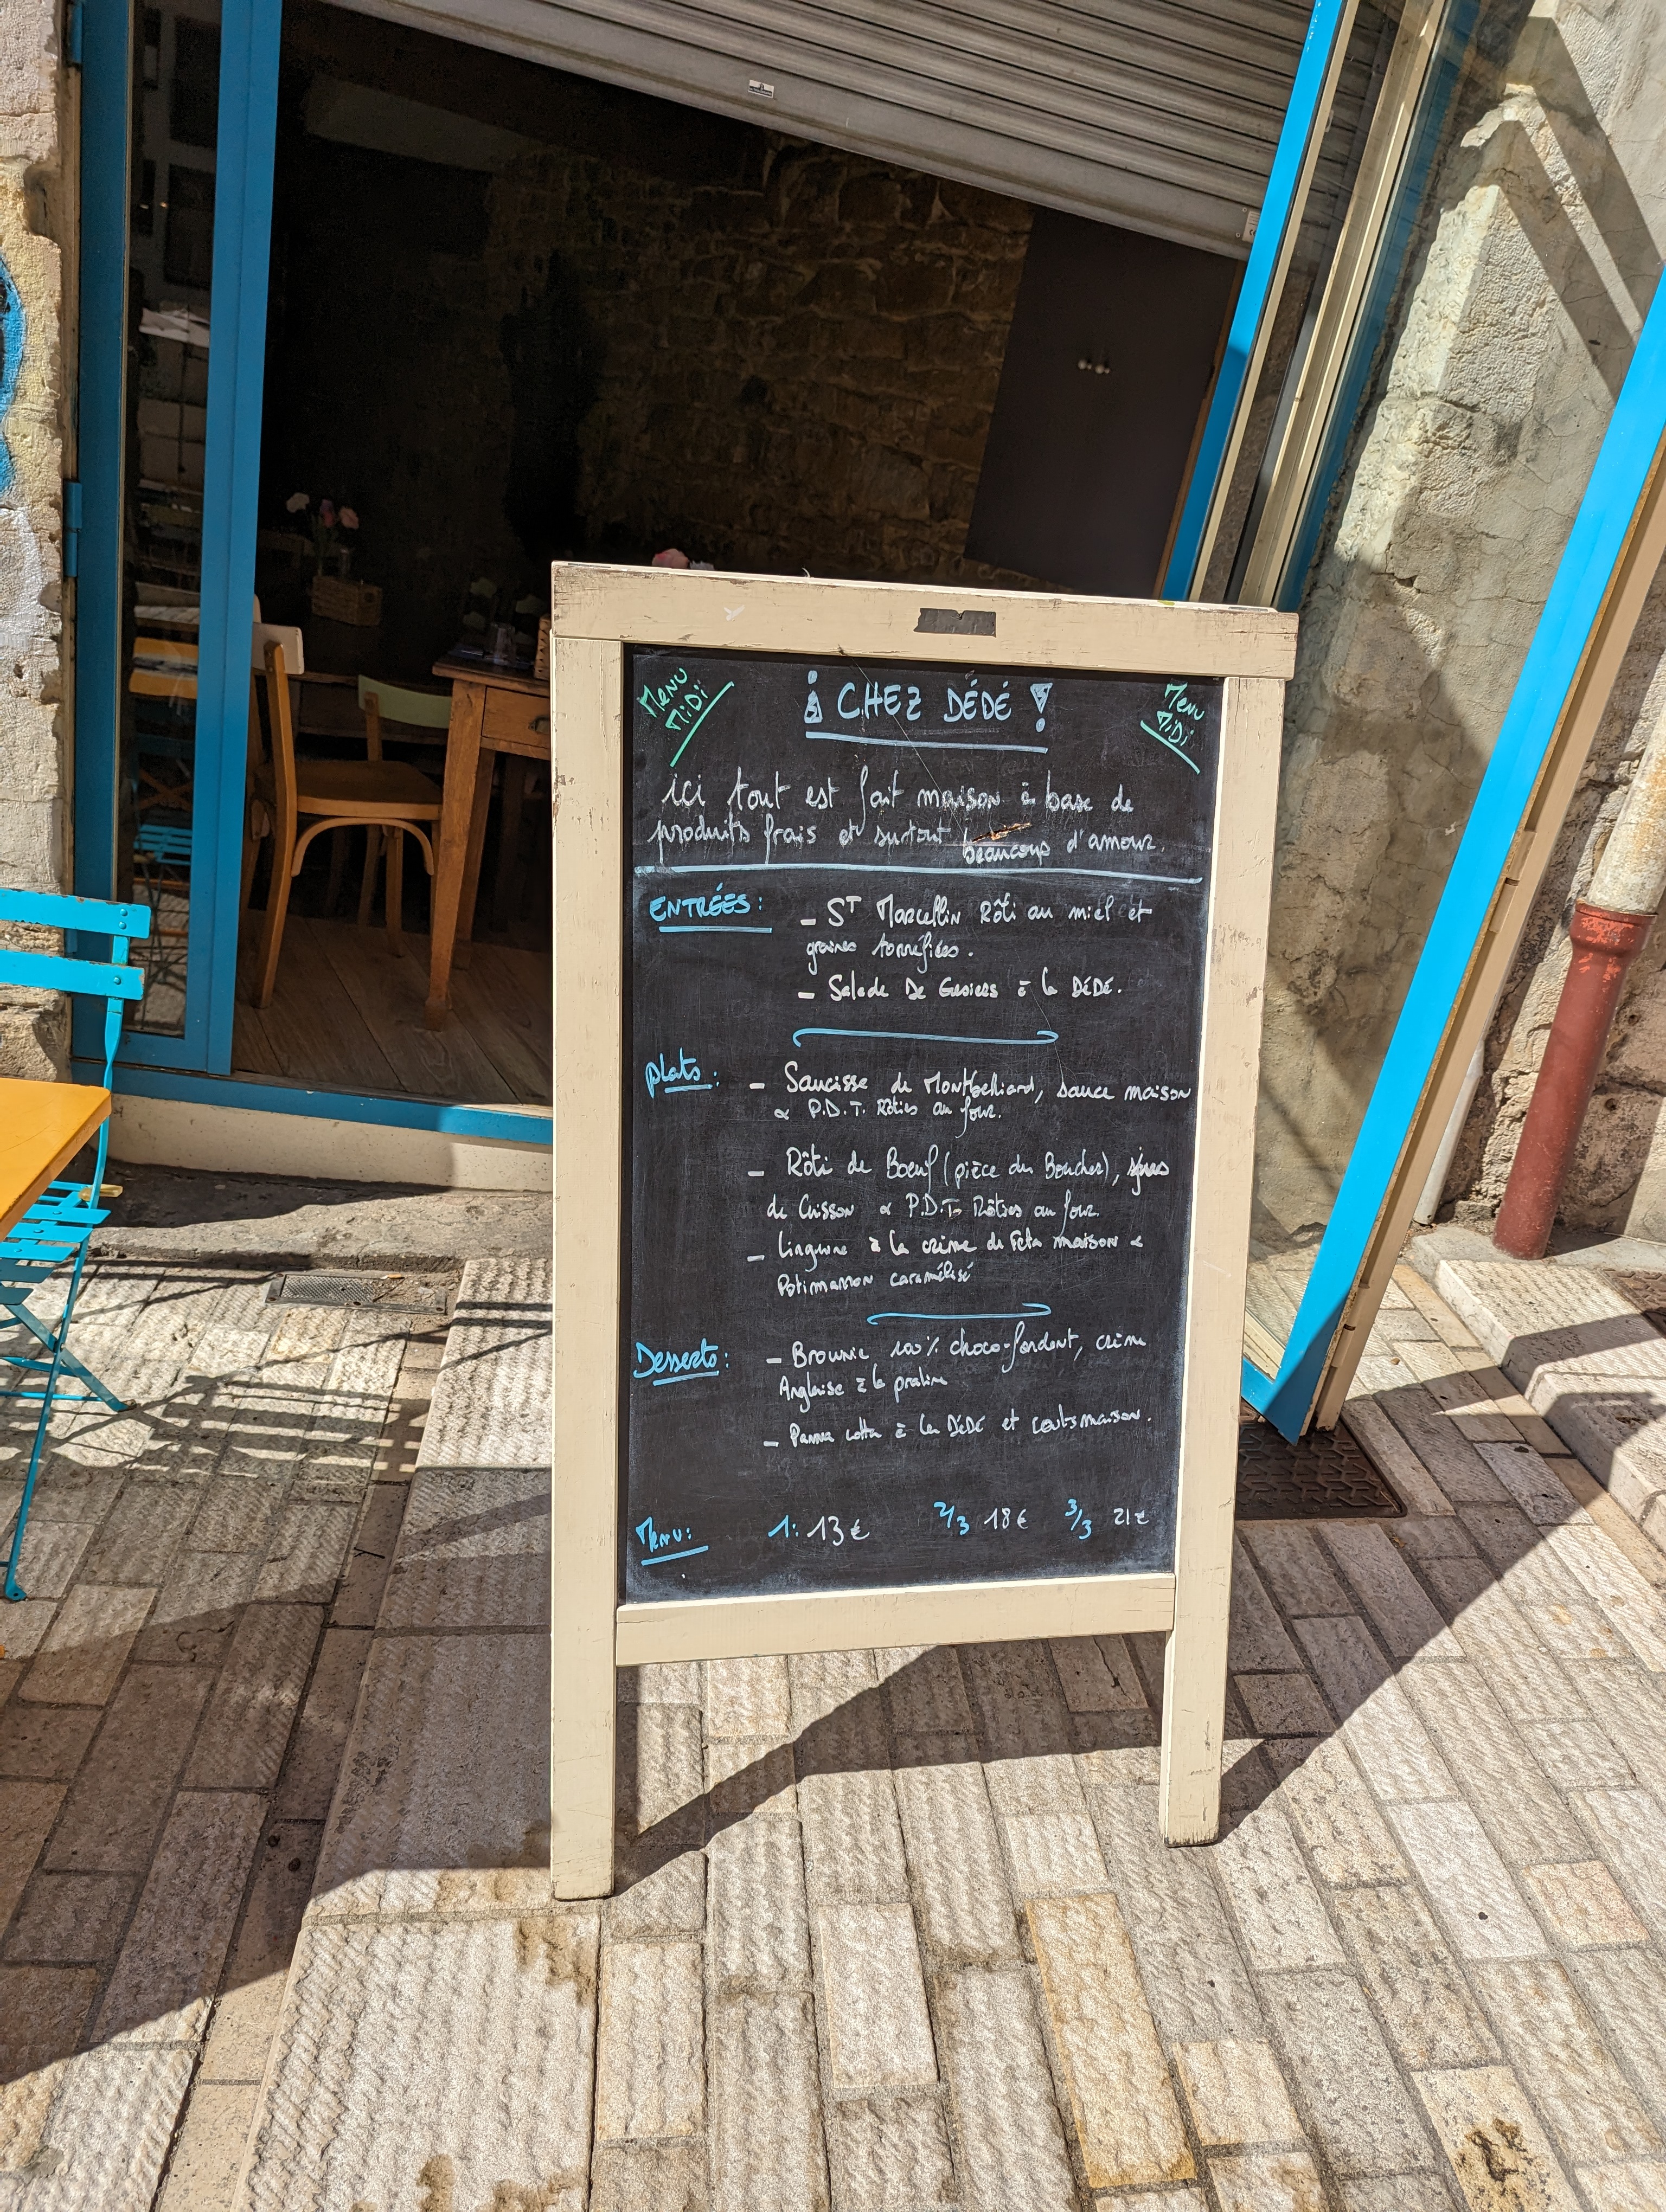 Menu Midi
¡ CHEZ DÉDÉ !
Menu Midi
ici tout est fait maison à base de
produits frais et surtout beaucoup d'amour.
ENTRÉES :
- ST Marcellin Rôti au miel et
graines torréfiées.
- Salade De Gesiers à la DÉDÉ.
plats :
- Saucisse de Montbelliard, sauce maison
& P.D.T. Rôties au four.
- Rôti de Boeuf (pièce du Boucher), jus
de Cuisson & P.D.T. Rôties au four.
- Linguine à la crème de Feta maison &
Potimarron caramélisé
Desserts :
- Brownie 100% choco-fondant, crème
Anglaise à la praline
- Panna cotta à la DéDé et coulis maison.
Menu :
1: 13€ 2/3 18€ 3/3 21€